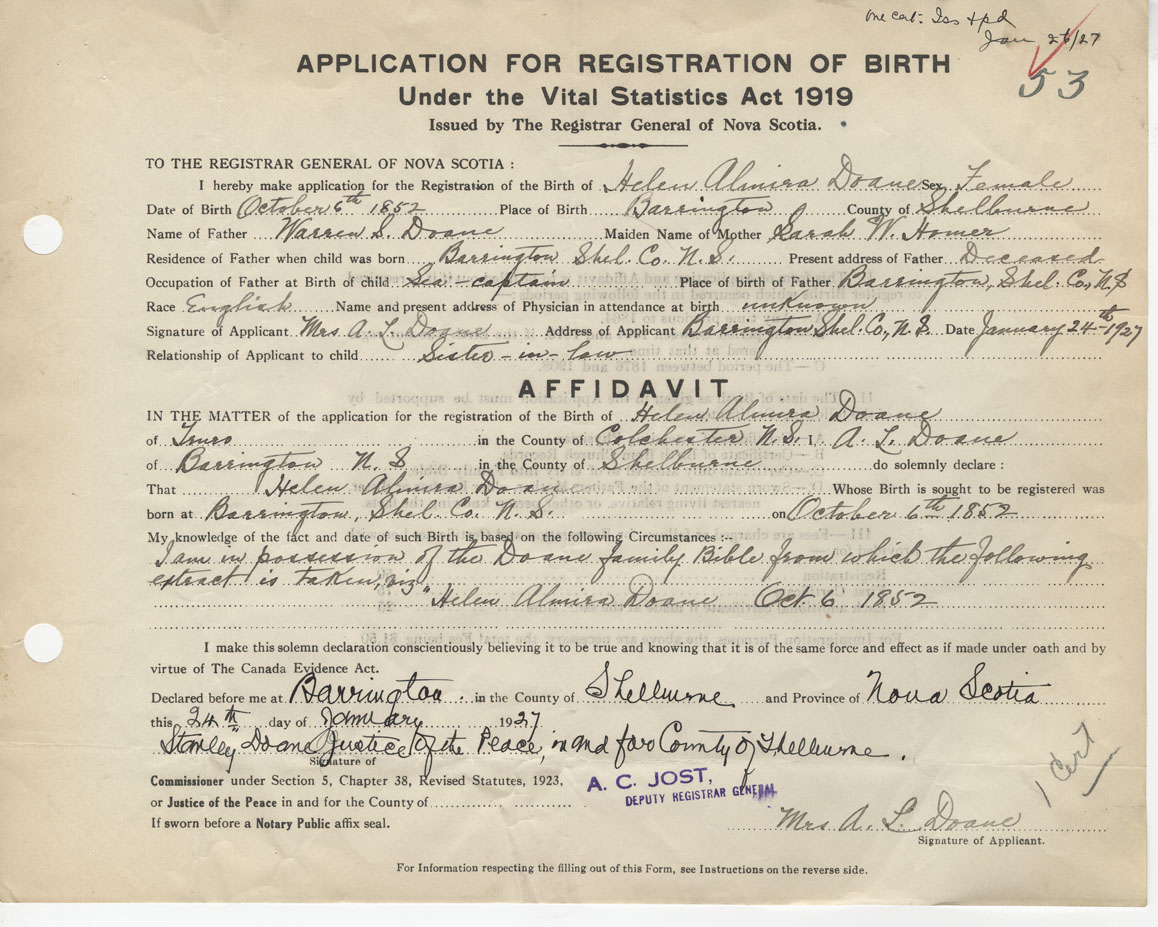 one cert. Iss + pd
Jan 26/27
53
APPLICATION FOR REGISTRATION OF BIRTH
Under the Vital Statistics Act 1919
Issued by The Registrar General of Nova Scotia.
TO THE REGISTRAR GENERAL OF NOVA SCOTIA :
I hereby make application for the Registration of the Birth of Helen Almira Doane Sex Female
Date of Birth October 6th 1852 Place of Birth Barrington County of Shelburne
Name of Father Warren S. Doane Maiden Name of Mother Sarah W. Homer
Residence of Father when child was born Barrington Shel. Co. N. S. Present address of Father Deceased
Occupation of Father at Birth of child Sea-captain Place of birth of Father Barrington, Shel. Co., N. S
Race English Name and present address of Physician in attendance at birth unknown
Signature of Applicant Mrs A. L. Doane Address of Applicant Barrington Shel. Co., N. S. Date January 24th 1927
Relationship of Applicant to child Sister-in-law
AFFIDAVIT
IN THE MATTER of the application for the registration of the Birth of Helen Almira Doane
of Truro in the County of Colchester N. S. I A. L. Doane
of Barrington N. S in the County of Shelburne do solemnly declare :
That Helen Almira Doane Whose Birth is sought to be registered was
born at Barrington, Shel. Co. N. S. on October 6th 1852
My knowledge of the fact and date of such Birth is based on the following Circumstances :--
I am in possession of the Doane family Bible from which the following
extract is taken, viz
"Helen Almira Doane Oct. 6 1852
I make this solemn declaration conscientiously believing it to be true and knowing that it is of the same force and effect as if made under oath and by
virtue of The Canada Evidence Act.
Declared before me at Barrington in the County of Shelburne and Province of Nova Scotia
this 24th day of January 1927
Stanley Doane Justice of the Peace, in and for County of Shelburne.
Signature of
Commissioner under Section 5, Chapter 38, Revised Statutes, 1923,
or Justice of the Peace in and for the County of
If sworn before a Notary Public affix seal.
A. C. JOST,
DEPUTY REGISTRAR GENERAL
1 Cert
Mrs A. L. Doane
Signature of Applicant.
For Information respecting the filling out of this Form, see Instructions on the reverse side.